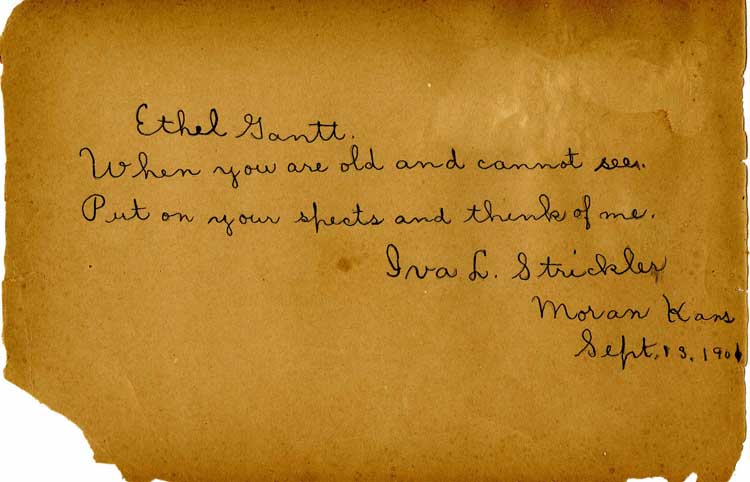 Ethel Gantt.
When you are old and cannot see.
Put on your spects and think of me.
Iva L. Strickler
Moran Kans
Sept. 13. 1901